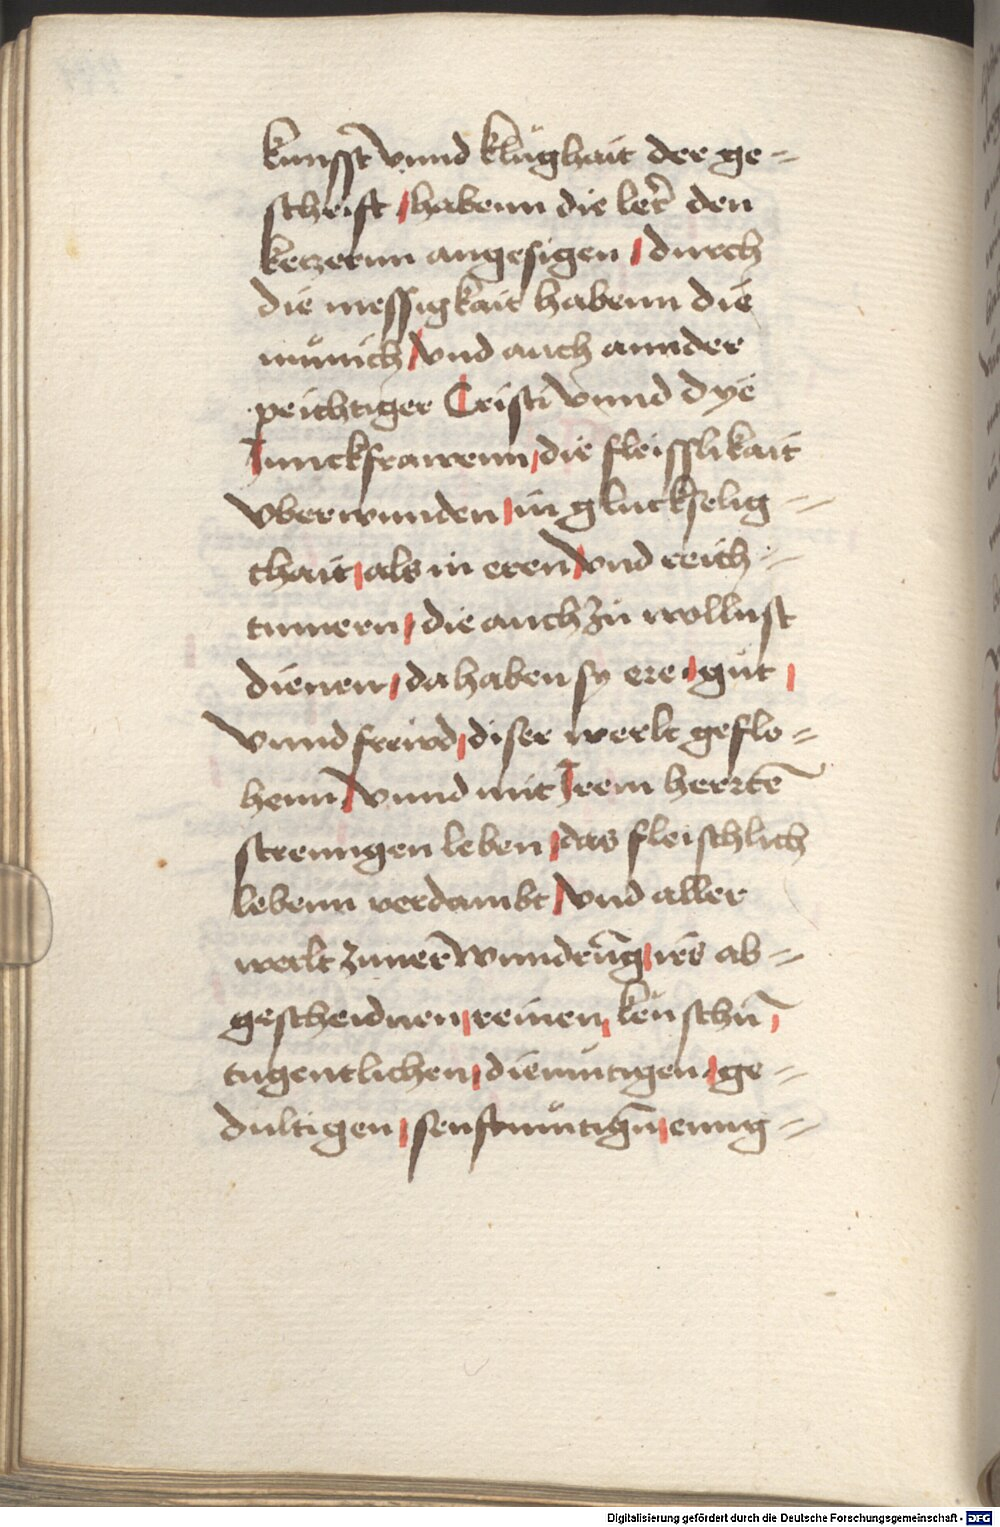 kunsst̄ vnnd klůghait der ge=
schrift / habenn die ler̄ den
ketzernn angesigen / durch
die messigkait habenn die
můnich / vnd auch annder
peichtiger Cristi vnnd dye
Junckfrawenn / die fleisslikait
vberwunden / in gluckselig=
thait / als in eren / vnd reich=
tumern / die auch zu wollust
dienen / da haben sy ere / gůt /
vnnd frewd / diser werlt geflo=
henn / vnnd mit Jrem herrtē
strenngen leben / das fleischlich
lebenn verdambt / vnd aller
werlt zu uer̄wundrūg / irs ab=
gescheidnen / reinen / keůschn̄ /
tugentlichen / diemůtigen / ge=
dultigen / senftmůtign̄ / ewig=
Digitalisierung gefördert durch die Deutsche Forschungsgemeinschaft - DFG